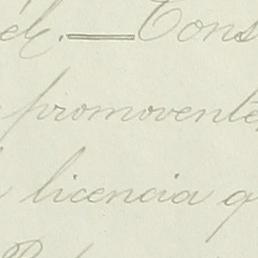 Cons
promovente
licencia q